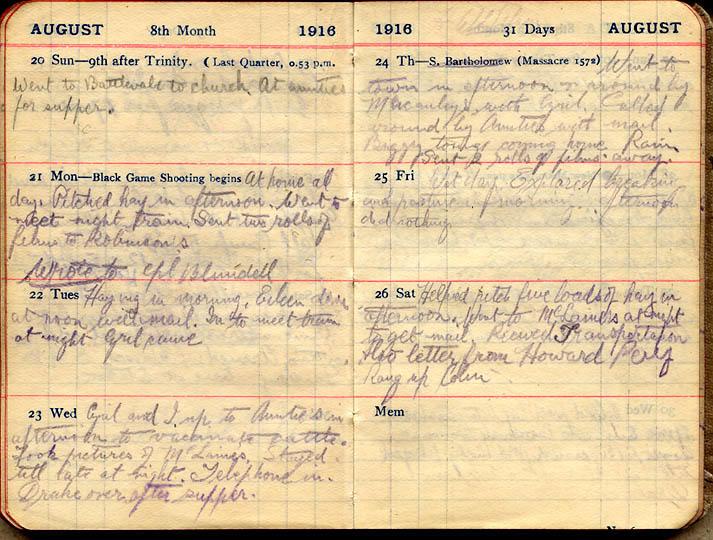 AUGUST 8th Month 1916
20 Sun—9th after Trinity. (Last Quarter, 0.53 p.m.
Went to Battlevale to church. At aunties
for supper.
21 Mon—Black Game Shooting begins At home all
day. Pitched hay in afternoon. Went to
meet night train. Sent two rolls of
films to Robinson's
Wrote to Cpl Blundell
22 Tues Haying in morning. Eileen down
at noon with mail. In to meet train
at night Cyril came
23 Wed Cyril and I up to Auntie's in
afternoon to vaccinate cattle.
Took pictures of McLames. Stayed
till late at night. Telephone in.
Drake over after supper.
1916 31 Days AUGUST
24 Th—S. Bartholomew (Massacre 1572) Went to
town in afternoon &amp; around by
with Cyril. Called
around by Aunties with mail.
coming home Rain
Sent 2 rolls of films away.
25 Fri Wet day. Explored
and in morning. Afternoon
did nothing
26 Sat Helped pitch five loads of hay in
afternoon. Went to McLames at night
to get mail. Recieved Transportation
Also letter from Howard
Rang up Colin
Mem